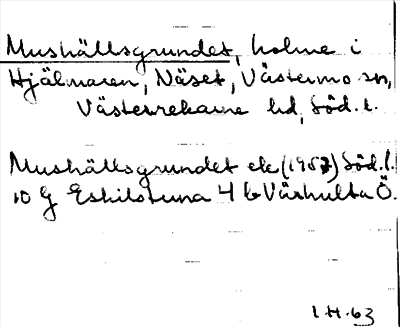 Mushällsgrundet, holme i
Hjälmaren, Näset, Västermo sn,
Västerrekarne hd, Söd. l.
Mushällsgrundet ek (1957) Söd. l.
10 G Eskilstuna 4 b Värhulta Ö.
I.H. 63